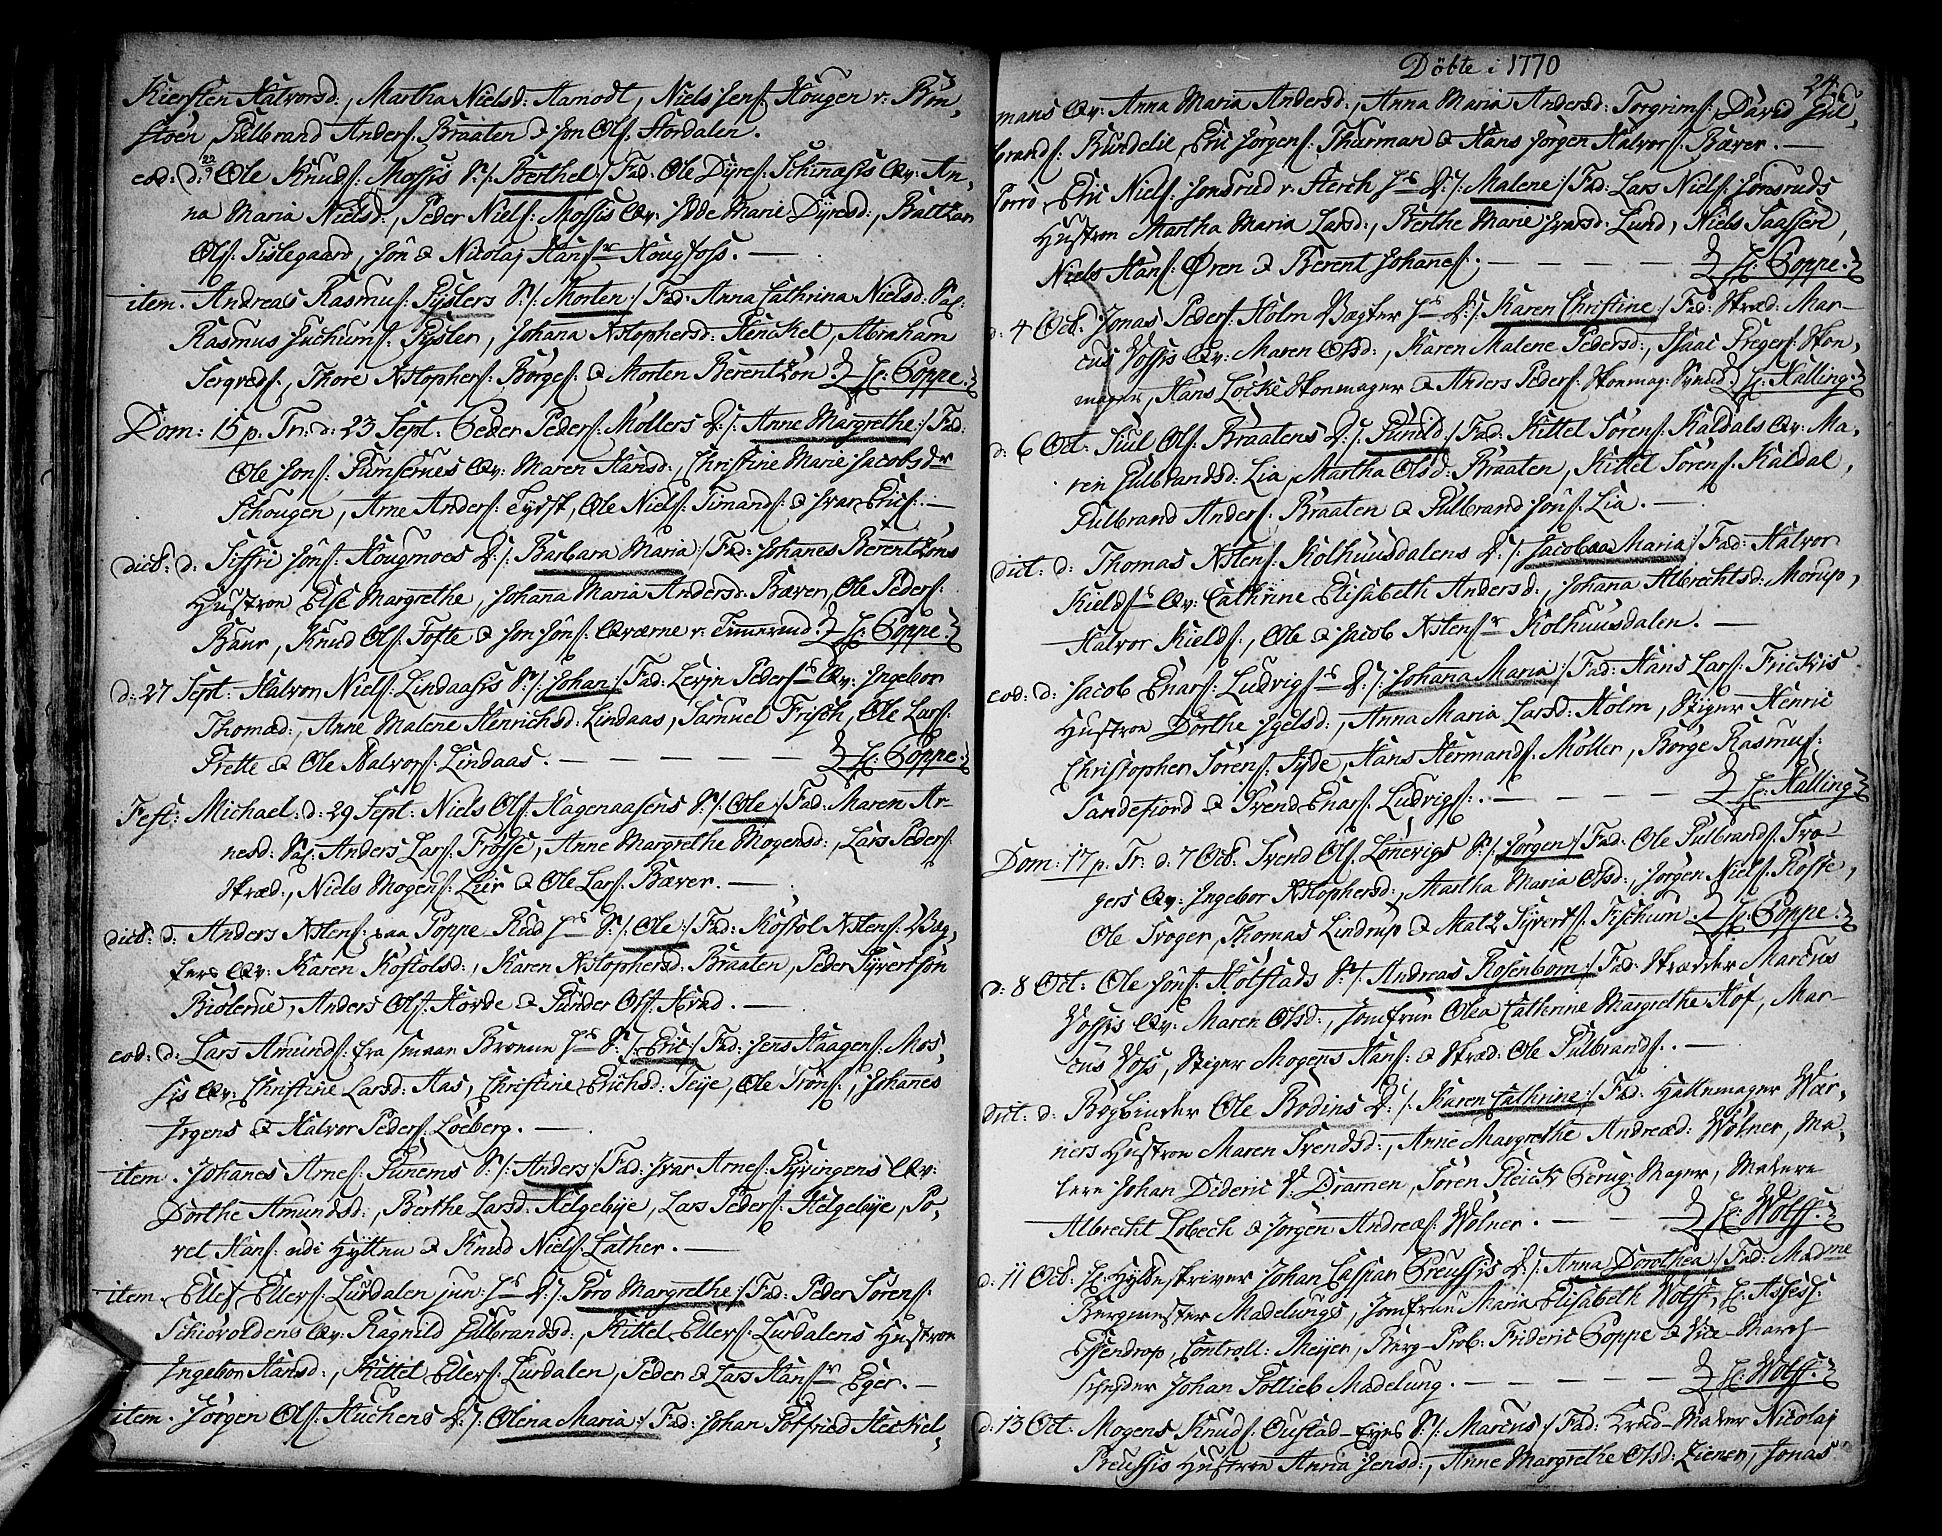 Kiersten Halvorsd:, Martha Nielsd: Aamodt, Niels Jens: Hougen v. Bon-
støen Gulbrand Anders: Braaten & Jon Ols: Stordalen.
eod: d: Ole Knuds: Mossis S: /: Berthel :/ Fad: Ole Dyres: Schinasis Qv: An-
na Maria Nielsd:, Peder Niels: Mossis Qv: Idde Marie Dyresd:, Baltzar
Ols: Tislegaard, Jon & Nicolaj Hans:r Hougfoss.
item. Andreas Rasmus: Gyslers S: /: Morten :/ Fad: Anna Cathrina Nielsd:
Rasmus Juchums: Gysler, Johana Xstophersd: Henckel, Abraham
Sergreds:, Thore Xstophers: Børges: & Morten Berentzøn. H: Poppe.
Dom: 15 p. Tr: d: 23 Sept: Peder Peders: Møllers D: /: Anne Margrethe :/ Fad:
Ole Jons: Qv: Maren Hansd:, Christine Marie Jacobsdr
Schougen, Arne Anders: Tyrst, Ole Niels: Timands: & Ivar Erics:
dict: d: Siffri Jøns: Hougmoes D: /: Barbara Maria :/ Fad: Johanes Berentzøns
Hustroe Else Margrethe, Johana Maria Andersd: Bæver, Ole Peders:
Baur, Knud Ols: Tofte & Jon Jøns: Qværne v. H: Poppe.
d: 27 Sept: Halvor Niels: Lindaasis S: /: Johan :/ Fad: Qv: Ingebor
Thomæd:, Anne Malene Henrichsd: Lindaas, Samuel Frisch, Ole Lars:
Prette & Ole Halvors: Lindaas. H: Poppe.
Fest: Michael: d: 29 Sept: Niels Ols: Hagenaasens S: /: Ole :/ Fad: Maren Ar-
nesd: Anders Lars: Frosse, Anne Margrethe Mogensd:, Lars Peders:
Skræd:, Niels Mogens: Leir & Ole Lars: Bæver.
dict: d: Anders Xstens: paa Poppe Rud H:s S: /: Ole :/ Fad: Kostol Xstens: Væg-
ters Qv: Karen Kostolsd:, Karen Xstophersd: Braaten, Peder Syvertsøn
Biølerne, Anders Ols: Horde & Gunder Ols: Kræd.
eod: d: Lars Amunds: fra Smaae Brønne H:s S: /: Eric :/ Fad: Jens Haagens: Mos-
sis Qv: Christine Larsd: Aas, Christine Erichsd: Teije, Ole Trøns:, Johanes
Irgens & Halvor Peders: Loeberg.
item. Johanes Arnes: Gunems S: /: Anders :/ Fad: Ivar Arnes: Gyvingens Qv:
Dorthe Amundsd:, Berthe Larsd: Helgebye, Lars Peders: Helgebye, Po-
vel Hans: udi Hytten & Knud Niels: Lather.
item. Ellef Ellefs: Lurdalen jun: H:s D: /: Goro Margrethe :/ Fad: Peder Sørens:
Schiøvoldens Qv: Ragnild Gulbrandsd:, Kittel Ellefs: Lurdalens Hustroe
Ingebor Hansd:, Kittel Ellefs: Lurdalen, Peder & Lars Hans:r Eger.
item. Jørgen Ols: Huchens D: /: Olena Maria :/ Fad: Johan Gotfried Heckel-
Døbte i 1770
24.
mans Qv: Anna Maria Andersd:, Anna Maria Andersd: Torgrims:, David Gul-
brands: Bundelie, Eric Jørgens: Thurman & Hans Jørgen Halvors: Bæver.
Eric Niels: Jonsrud v. H:s D: /: Malene :/ Fad: Lars Niels: Jonsruds
Hustroe Martha Maria Larsd:, Berthe Marie Ivarsd: Lund, Niels Saassen,
Niels Hans: Øren & Berent Johanes: H: Poppe.
d: 4 Oct: Jonas Peders: Holm Vægter H:s D: /: Karen Christine :/ Fad: Skræd: Mar-
cus Vossis Qv: Maren Olsd:, Karen Malene Pedersd:, Isaac Pregers: Skoe-
mager, Hans Locke Skoemager & Anders Peders: Skoemag: Svend: H: Halling.
d: 6 Oct: Juul Ols: Braatens D: /: Gunild :/ Fad: Kittel Sørens: Kaldals Qv: Ma-
ren Gulbrandsd: Lia, Martha Olsd: Braaten, Kittel Sørens: Kaldal,
Gulbrand Anders: Braaten & Gulbrand Jøns: Lia.
dict: d: Thomas Xstens: Kolhuusdalens D: /: Jacobaa Maria :/ Fad: Halvor
Kields:s Qv: Cathrine Elisabeth Andersd:, Johana Albrechtsd: Morup,
Halvor Kields:, Ole & Jacob Xstens:r Kolhuusdalen.
eod: d: Jacob Enars: Ludvigs:s D: /: Johana Maria :/ Fad: Hans Lars: Frickis
Hustroe Dorthe Igelsd:, Anna Maria Larsd: Holm, Stiger Henric
Christopher Sørens: Syde, Hans Hermands: Møller, Børge Rasmus:
Sandefiord & Svend Enars: Ludvigs:. H: Halling
Dom: 17 p. Tr: d: 7 Oct: Svend Ols: Lønevigs S: /: Jørgen :/ Fad: Ole Gulbrands: Tro-
gers Qv: Ingebor Xstophersd:, Martha Maria Olsd:, Jørgen Niels: Kosse,
Ole Troger, Thomas Lindrup & Matz Syverts: Fischum. H: Poppe.
d: 8 Oct: Ole Jøns: Holstads S: /: Andreas Rosenborn :/ Fad: Skrædder Marcus
Vossis Qv: Maren Olsd:, Jomfrue Olea Catherine Margrethe Hof, Mar-
cus Voss, Stiger Mogens Hans: & Skræd: Ole Gulbrands:.
dict: d: Bogbinder Ole Bodins D: /: Karen Cathrine :/ Fad: Hattemager War-
ners Hustroe Maren Svendsd:, Anne Margrethe Andreæd: Wølner, Ma-
lere Johan Dideric v. Dramen, Søren Fleick Peruq: Mager, Malere
Albrecht Lobeck & Jørgen Andreæs: Wølner. H: Wolff.
d: 11 Oct: H: Hytteskriver Johan Caspar Preussis D: /: Anna Dorothea :/ Fad: Madme
Bergmester Madelungs, Jomfrue Maria Elisabeth Wolff, H: Assess:
Essendrop, Controll: Meijer, Berg-Prob: Frideric Poppe & Vice-March-
scheider Johan Gottlieb Madelung. H: Wolff.
d: 13 Oct: Mogens Knuds: Oustad-Eyes S: /: Marcus :/ Fad: Kræd-Maker Nicolaj
Preussis Hustroe Anna Jensd:, Anne Margrethe Olsd: Ziener, Jonas